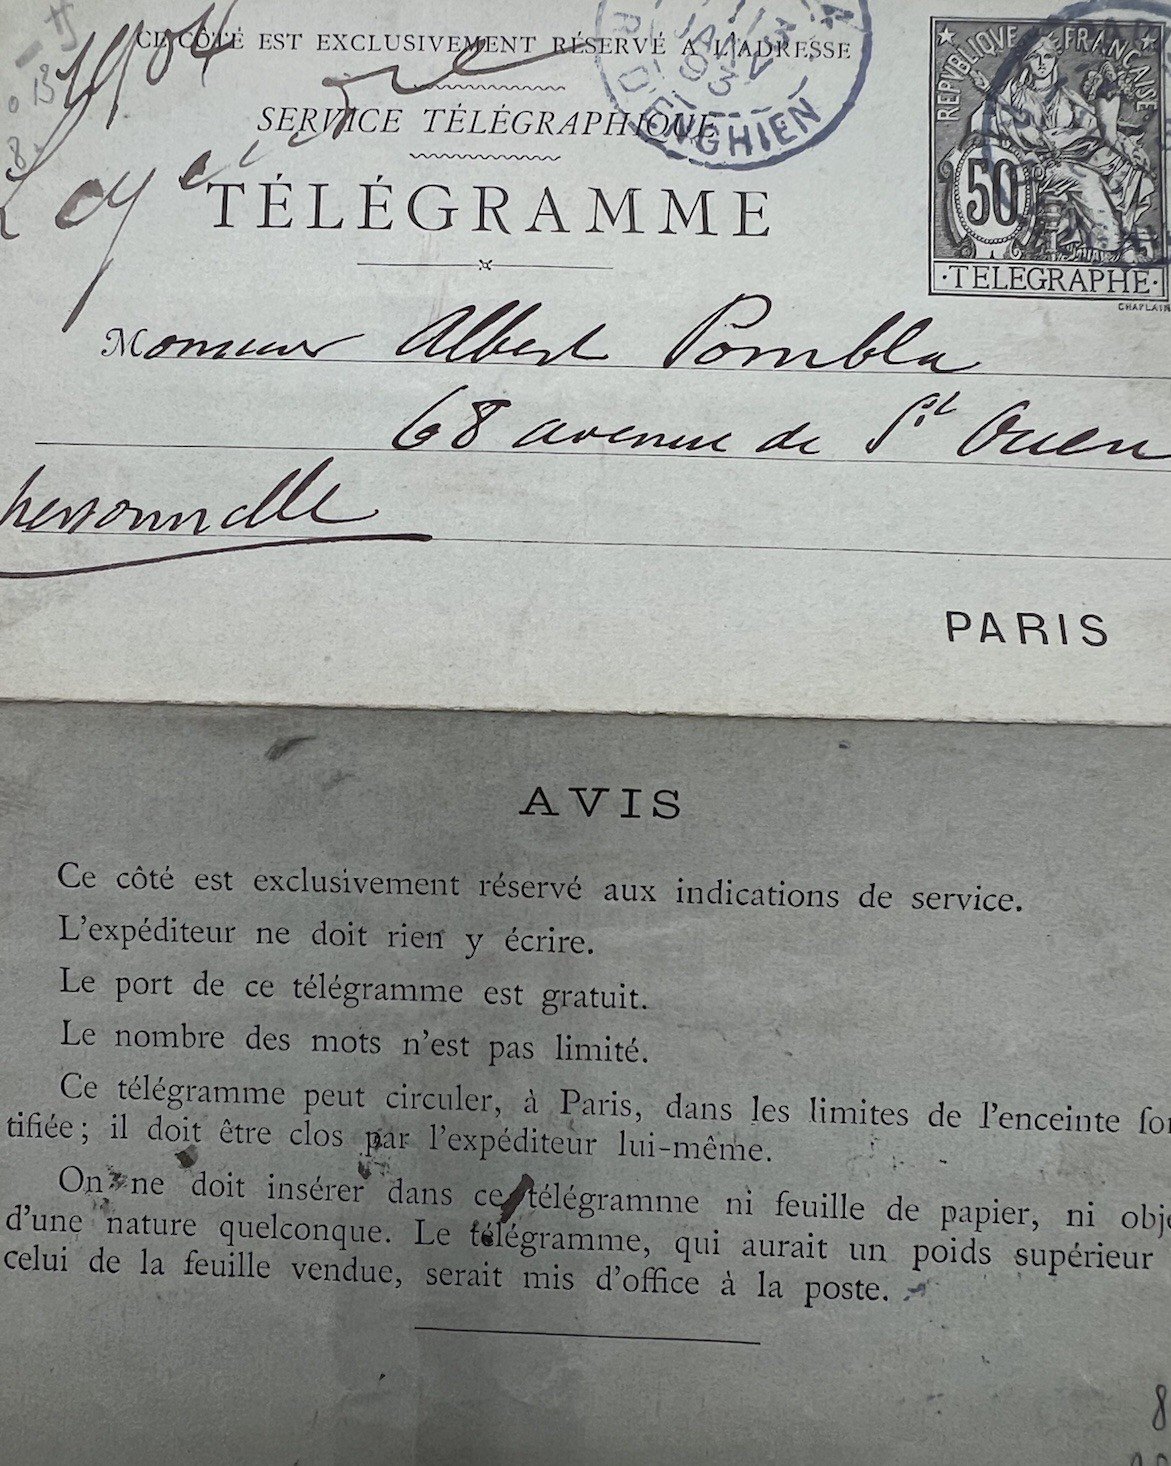 CE CÔTÉ EST EXCLUSIVEMENT RÉSERVÉ A L'ADRESSE
SERVICE TÉLÉGRAPHIQUE
TÉLÉGRAMME
D'ENGHIEN
JANV
93
REPUBLIQUE FRANÇAISE
50
·TELEGRAPHE·
CHAPLAIN
Monsieur Albert Pombla
68 avenue de St Ouen
personnelle
PARIS
AVIS
Ce côté est exclusivement réservé aux indications de service.
L'expéditeur ne doit rien y écrire.
Le port de ce télégramme est gratuit.
Le nombre des mots n'est pas limité.
Ce télégramme peut circuler, à Paris, dans les limites de l'enceinte for
tifiée; il doit être clos par l'expéditeur lui-même.
On ne doit insérer dans ce télégramme ni feuille de papier, ni obje
d'une nature quelconque. Le télégramme, qui aurait un poids supérieur
celui de la feuille vendue, serait mis d'office à la poste.
8